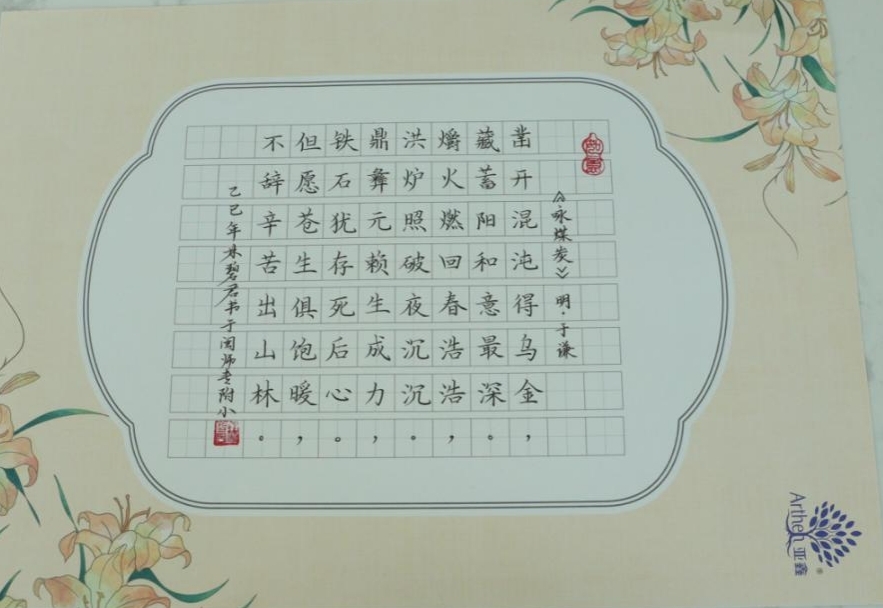 《咏煤炭》 明·于谦
凿开混沌得乌金，
藏蓄阳和意最深。
爝火燃回春浩浩，
洪炉照破夜沉沉。
鼎彝元赖生成力，
铁石犹存死后心。
但愿苍生俱饱暖，
不辞辛苦出山林。
乙巳年林碧君书于闽师专附小
Arthen 亚鑫